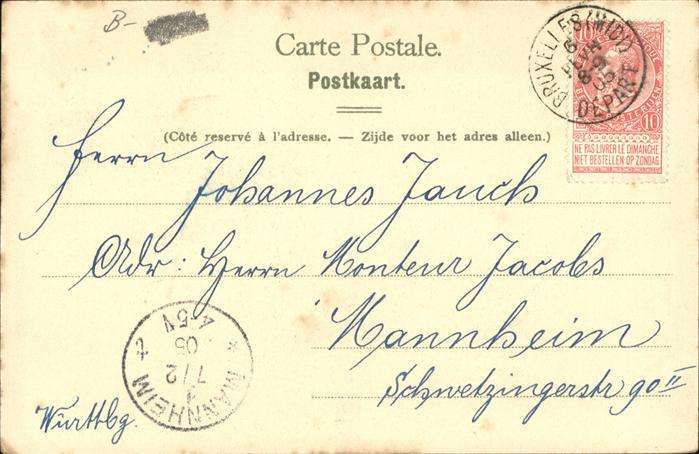 B-
Carte Postale.
Postkaart.
(Côté reservé à l'adresse. — Zijde voor het adres alleen.)
BRUXELLES (MIDI)
6
FEVR
8-9
05
DEPART
10
NE PAS LIVRER LE DIMANCHE
NIET BESTELLEN OP ZONDAG
Herrn Johannes Jauch
Adr: Herrn Monteur Jacobs
Mannheim
Schwetzingerstr 90 II
Württbg.
* MANNHEIM 2 *
7/2
05
4-5N